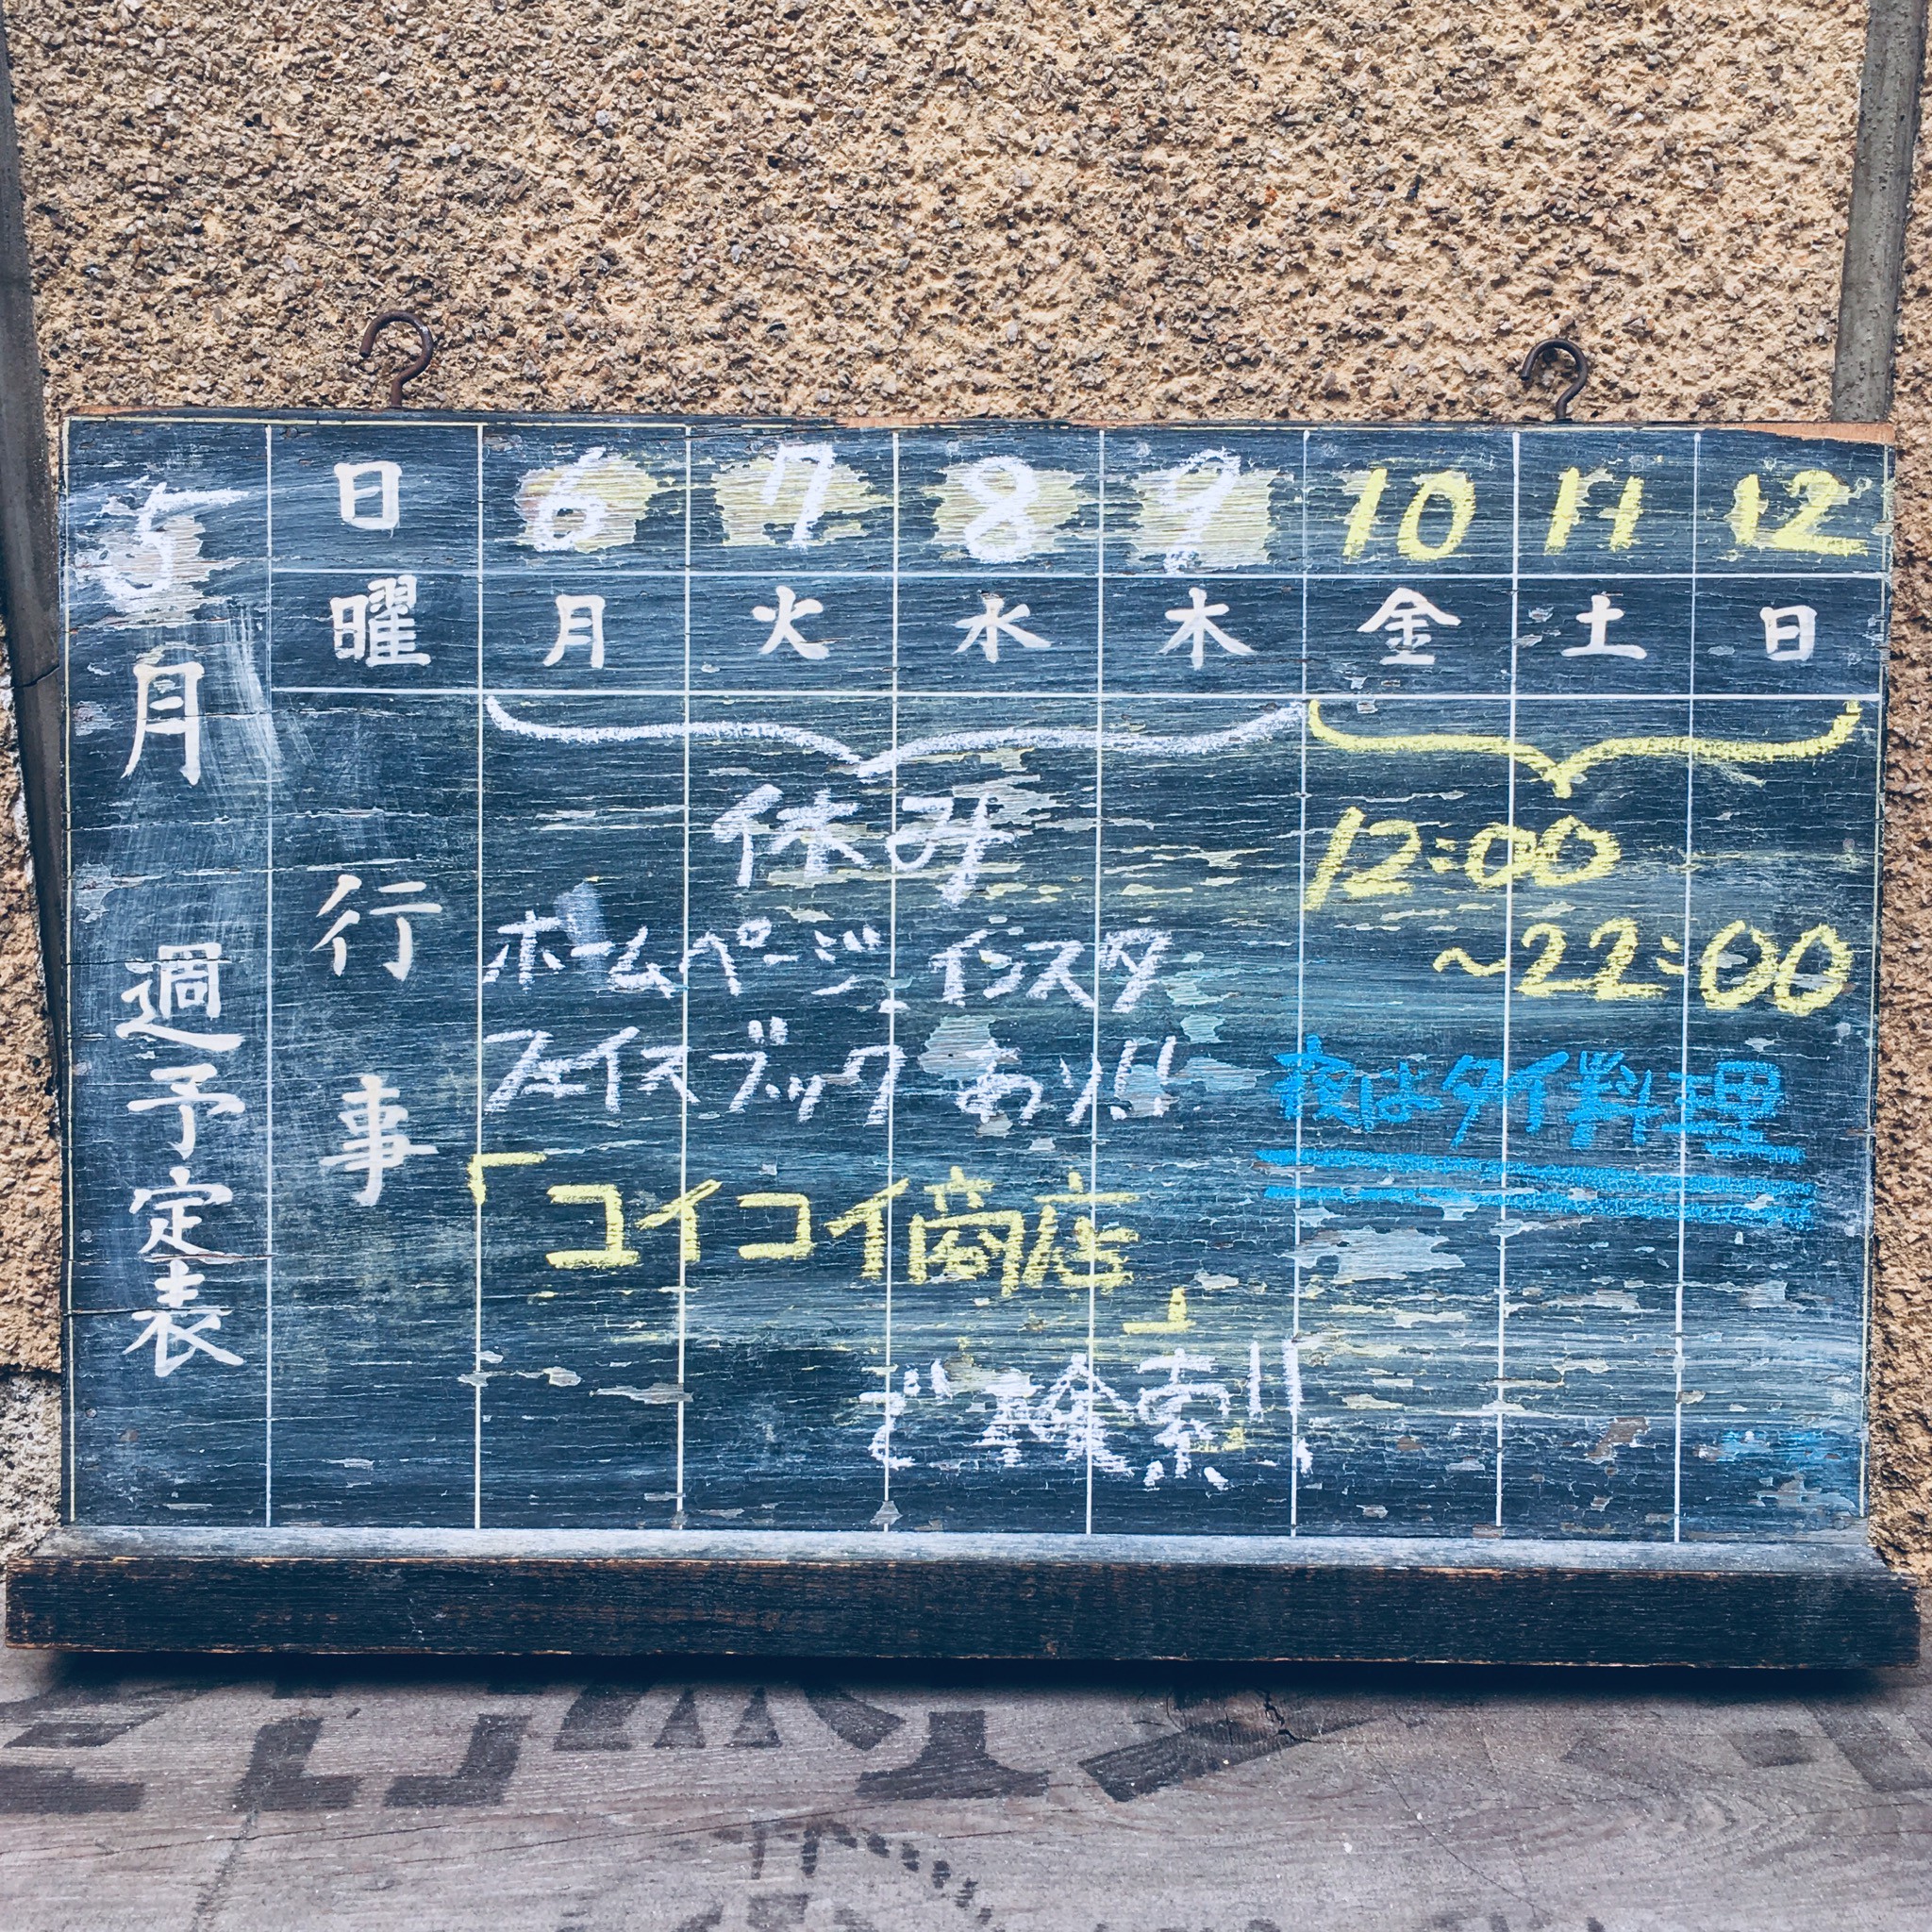 5月 週予定表
日 6 7 8 9 10 11 12
曜 月 火 水 木 金 土 日
行事
休み
ホームページ、インスタ
フェイスブックあり!!
「コイコイ商店」
で検索!!
12:00
~22:00
夜はタイ料理